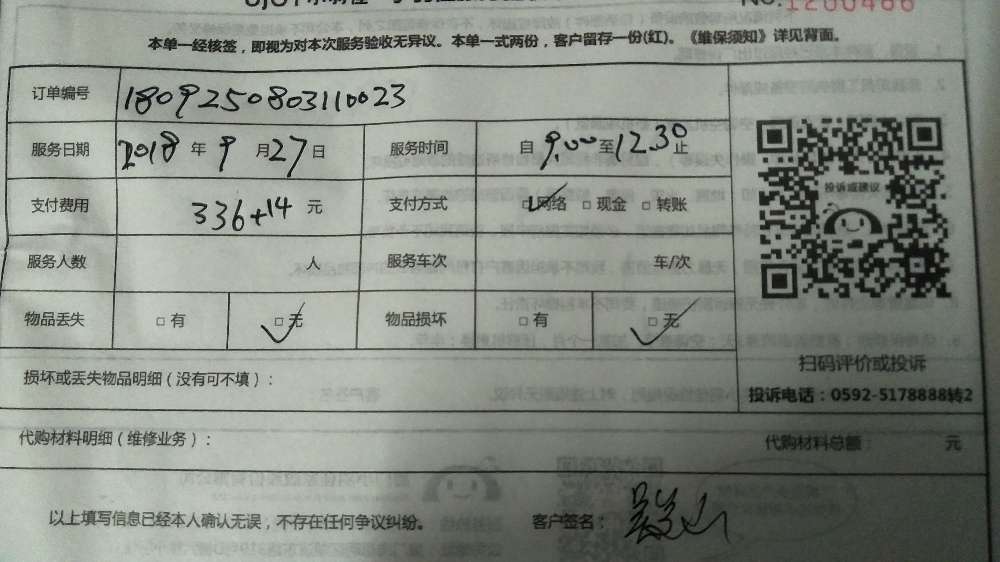 No.1260466
本单一经核签，即视为对本次服务验收无异议。本单一式两份，客户留存一份(红)。《维保须知》详见背面。
订单编号 180925080311 0023
服务日期 2018 年 9 月 27 日 服务时间 自 9.00 至 12.30 止
支付费用 336+14 元 支付方式 □网络 □现金 □转账
服务人数 人 服务车次 车/次
物品丢失 □有 □无 物品损坏 □有 □无
投诉或建议
扫码评价或投诉
投诉电话：0592-5178888转2
损坏或丢失物品明细（没有可不填）：
代购材料明细（维修业务）： 代购材料总额： 元
以上填写信息已经本人确认无误，不存在任何争议纠纷。 客户签名：